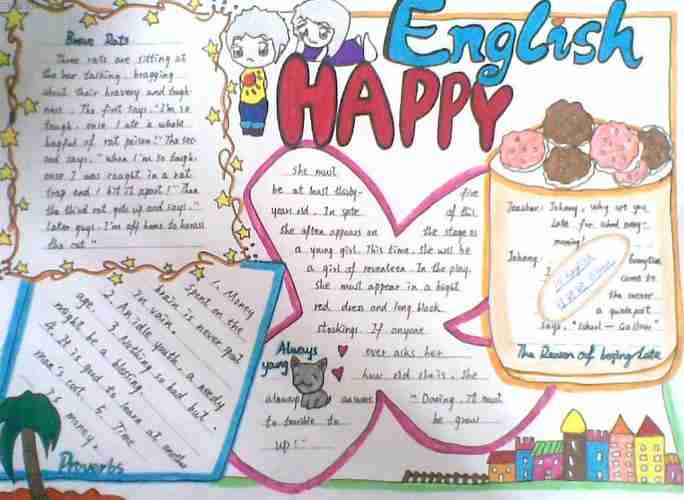 English
HAPPY
Brave Rats
Three rats are sitting at
the bar talking bragging
about their bravery and tough-
ness. The first says, "I'm so
tough, once I ate a whole
bagful of rat poison!" The sec-
ond says, "when I'm so tough,
once I was caught in a rat
trap and I bit it apart!" Then
the third rat gets up and says,"
Later guys, I'm off home to harass
the cat."
She must
be at least thirty-five
years old. In spite of this
she often appears on the stage as
a young girl. This time, she will be
a girl of seventeen. In the play,
she must appear in a bright
red dress and long black
stockings. If anyone
ever asks her
how old she is, she
always answers "Darling, It must
be terrible to be grow
up!"
Always
young
Teacher: Johnny, why are you
late for school every
morning?
Johnny: Everytime
I came to
the corner
a guidepost
says, "School — Go Slow"
The Reason of being Late
1. Money
spent on the
brain is never spent
in vain.
2. An idle youth, a needy
age. 3. Nothing so bad but
might be a blessing.
4. It is good to learn at another
man's cost. 5. Time
is money.
Proverbs